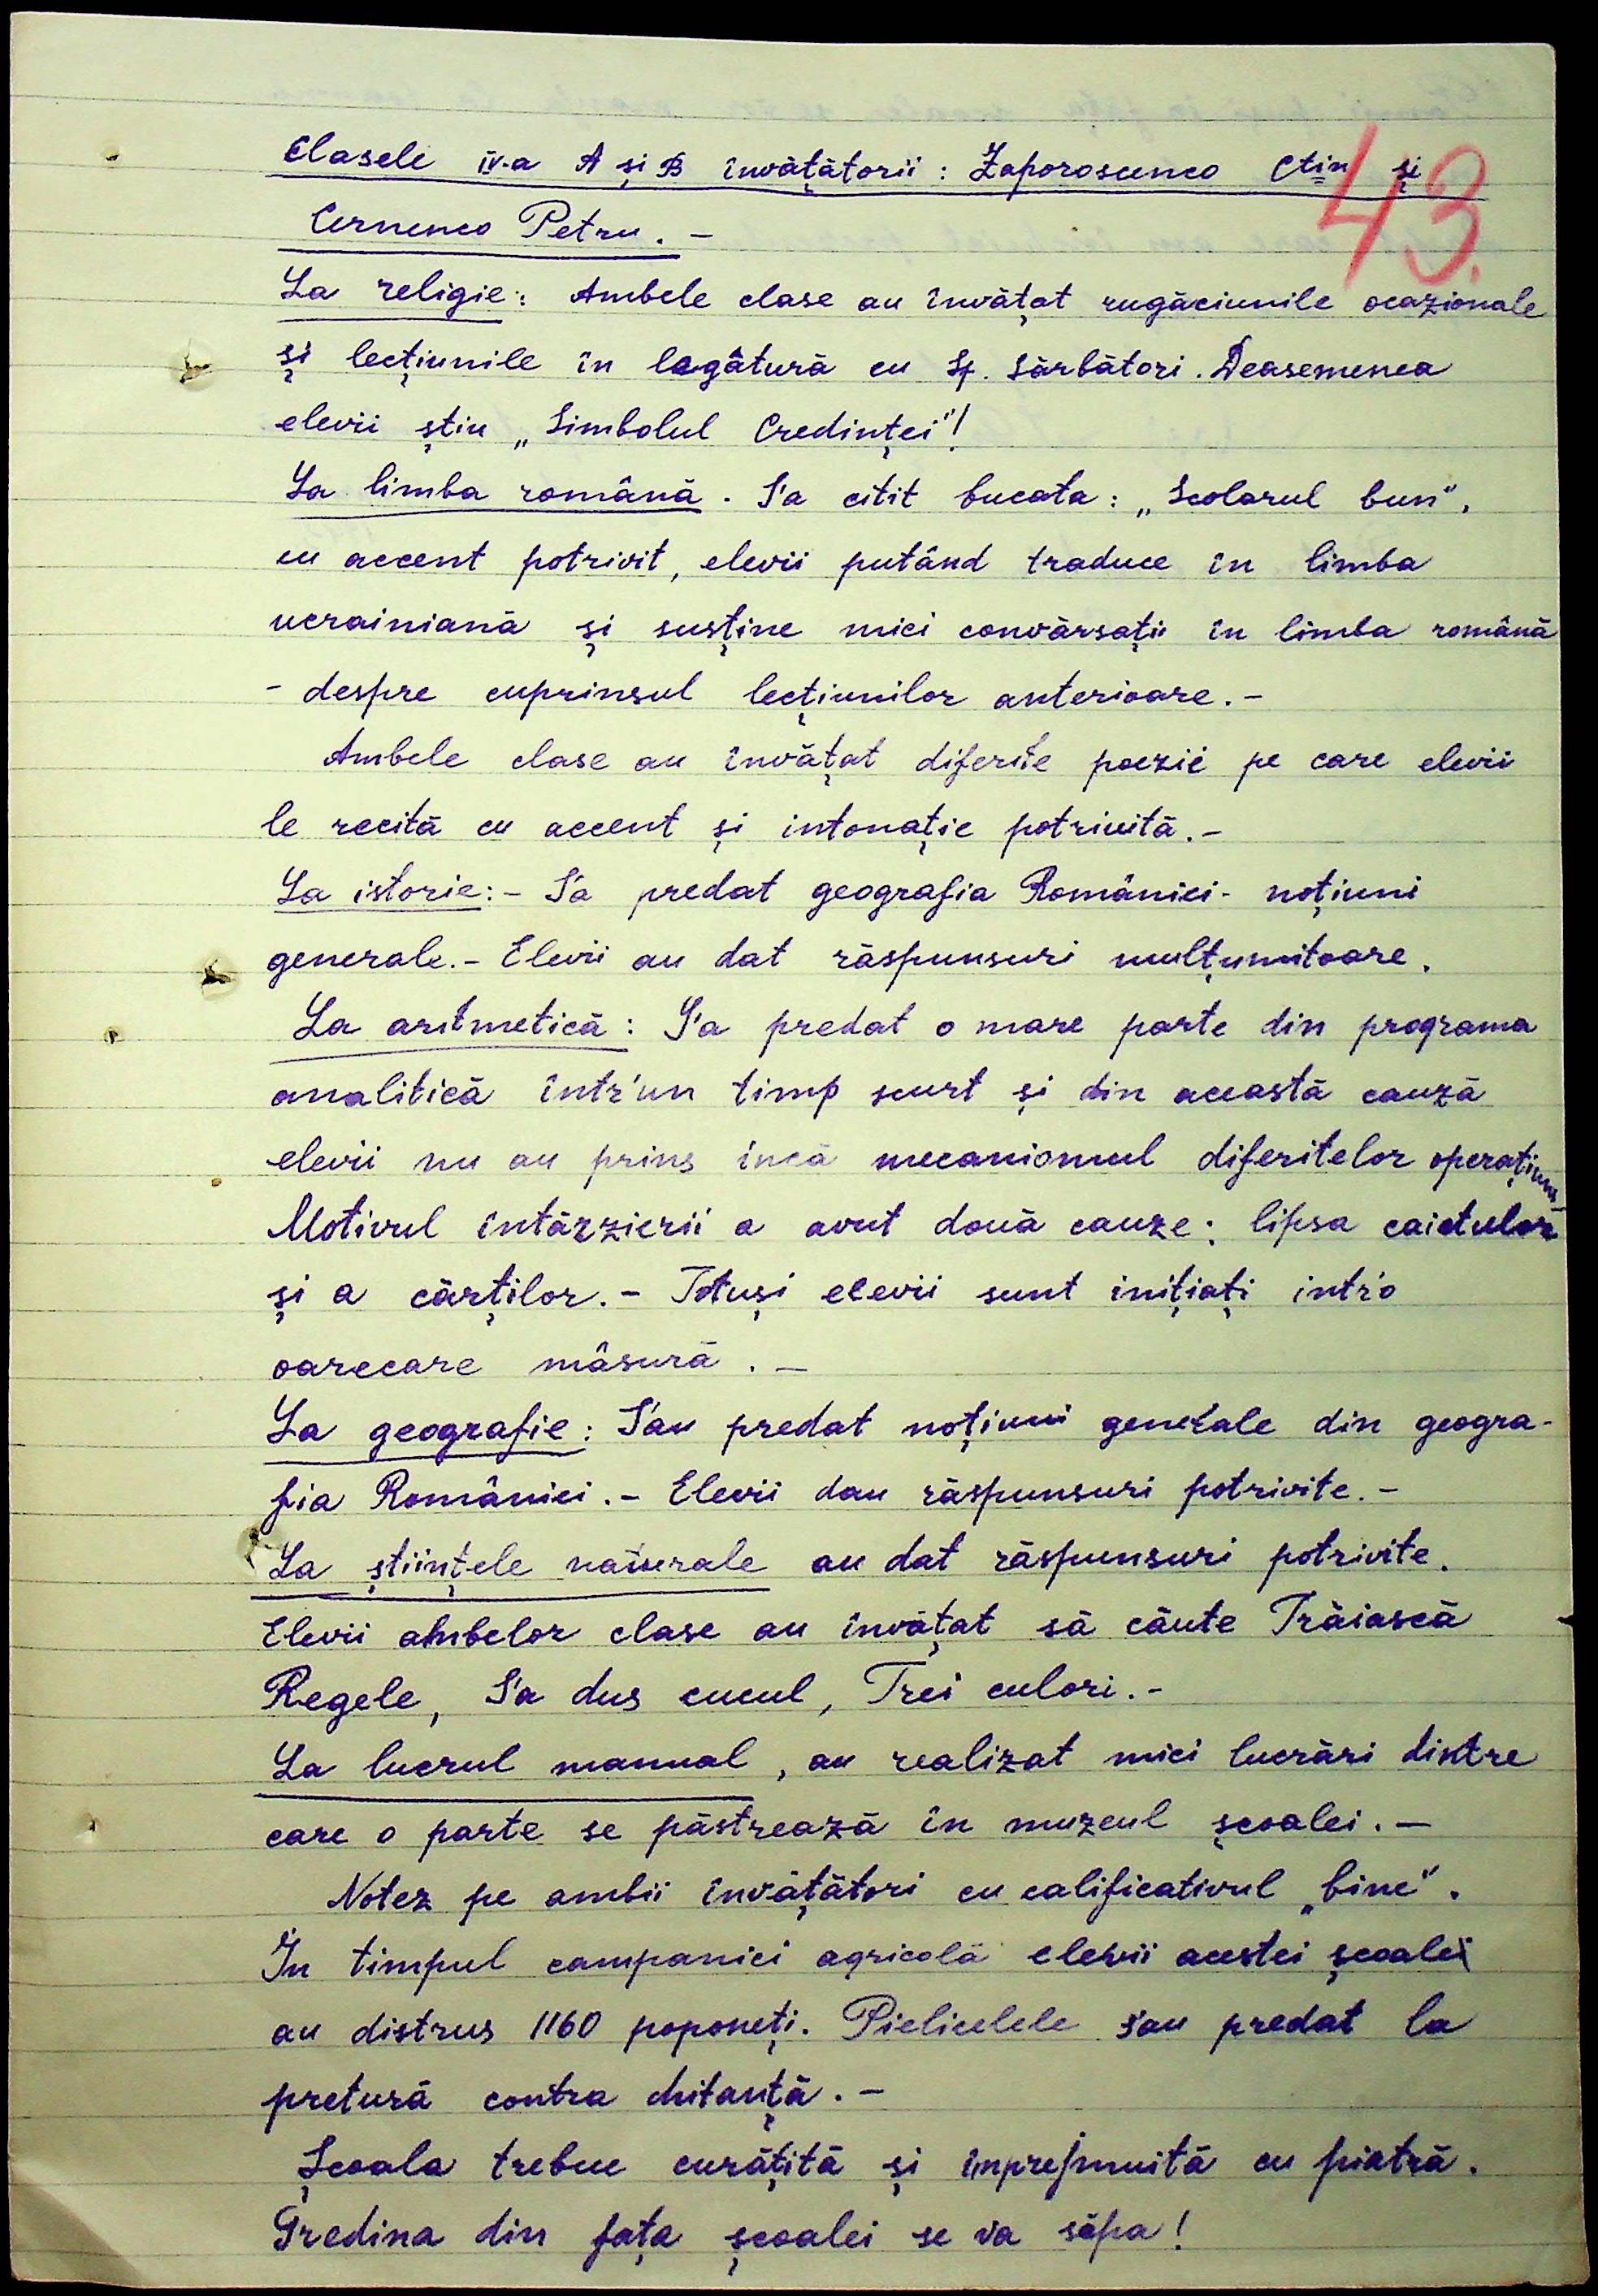 Clasele IV-a A și B învățătorii: Zaporoscenco Ctin și
43.
Cernenco Petru. -
La religie: Ambele clase au învățat rugăciunile ocazionale
și lecțiunile în legătură cu Sf. Sărbători. Deasemenea
elevii știu „Simbolul Credinței"!
La limba română. S'a citit bucata: „Scolarul bun",
cu accent potrivit, elevii putând traduce în limba
ucrainiană și susține mici convărsații în limba română
- despre cuprinsul lecțiunilor anterioare. -
Ambele clase au învățat diferite poezii pe care elevii
le recită cu accent și intonație potrivită. -
La istorie: - S'a predat geografia României - noțiuni
generale. - Elevii au dat răspunsuri mulțumitoare.
La aritmetică: S'a predat o mare parte din programa
analitică într'un timp scurt și din această cauză
elevii nu au prins încă mecanismul diferitelor operațiuni
Motivul întârzierii a avut două cauze: lipsa caietelor
și a cărților. - Totuși elevii sunt inițiați intr'o
oarecare măsură. -
La geografie: S'au predat noțiuni generale din geogra-
fia României. - Elevii dau răspunsuri potrivite. -
La științele naturale au dat răspunsuri potrivite.
Elevii ambelor clase au învățat să cânte Trăiască
Regele, S'a dus cucul, Trei culori. -
La lucrul manual, au realizat mici lucrări dintre
care o parte se păstrează în muzeul școalei. -
Notez pe ambii învățători cu calificativul „bine".
În timpul campaniei agricolă elevii acestei școalei
au distrus 1160 poponeți. Pielicelele s'au predat la
pretură contra chitanță. -
Școala trebue curățită și împrejmuită cu piatră.
Gredina din fața școalei se va săpa!